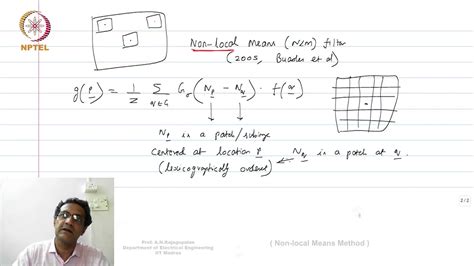 NPTEL
Non-local Means (NLM) filter
(2005, Buades et al)
g(p) = 1/Z Σ_{q∈G} G_σ(N_p − N_q) · f(q)
N_p is a patch/subimage
centered at location p. N_q is a patch at q.
(lexicographically ordered)
2/2
Prof. A.N.Rajagopalan
Department of Electrical Engineering
IIT Madras
( Non-local Means Method )